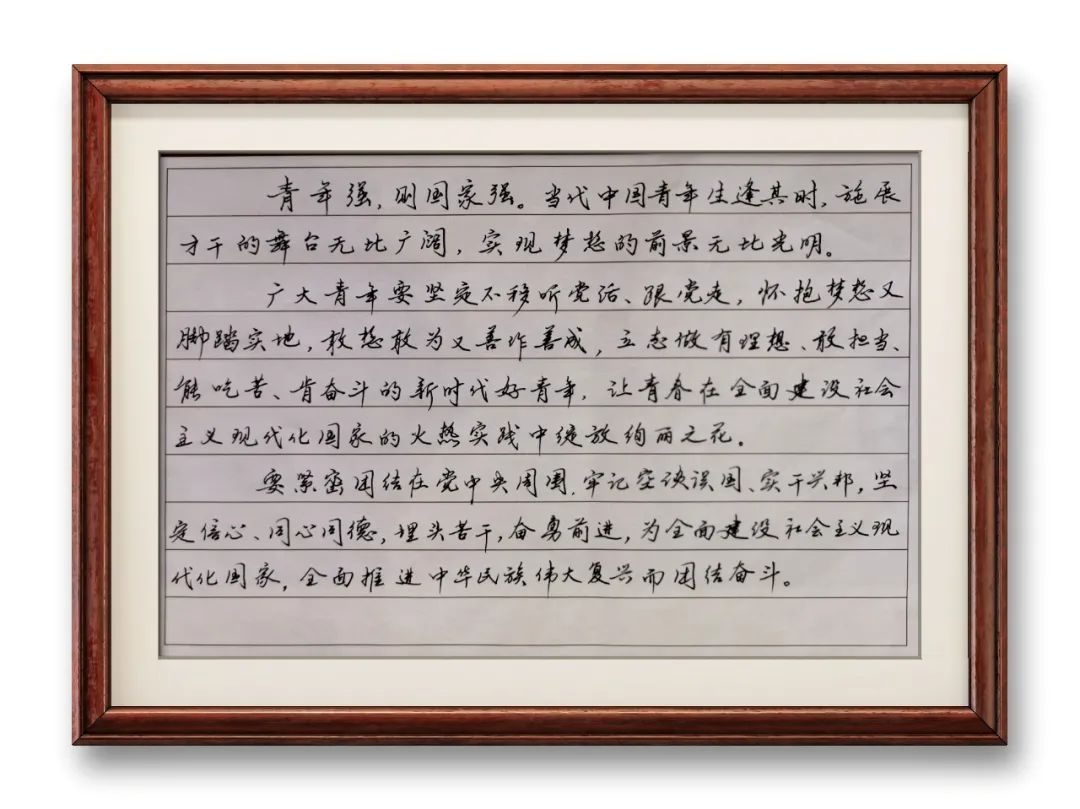 青年强，则国家强。当代中国青年生逢其时，施展
才干的舞台无比广阔，实现梦想的前景无比光明。
广大青年要坚定不移听党话、跟党走，怀抱梦想又
脚踏实地，敢想敢为又善作善成，立志做有理想、敢担当、
能吃苦、肯奋斗的新时代好青年，让青春在全面建设社会
主义现代化国家的火热实践中绽放绚丽之花。
要紧密团结在党中央周围，牢记空谈误国、实干兴邦，坚
定信心、同心同德，埋头苦干，奋勇前进，为全面建设社会主义现
代化国家，全面推进中华民族伟大复兴而团结奋斗。